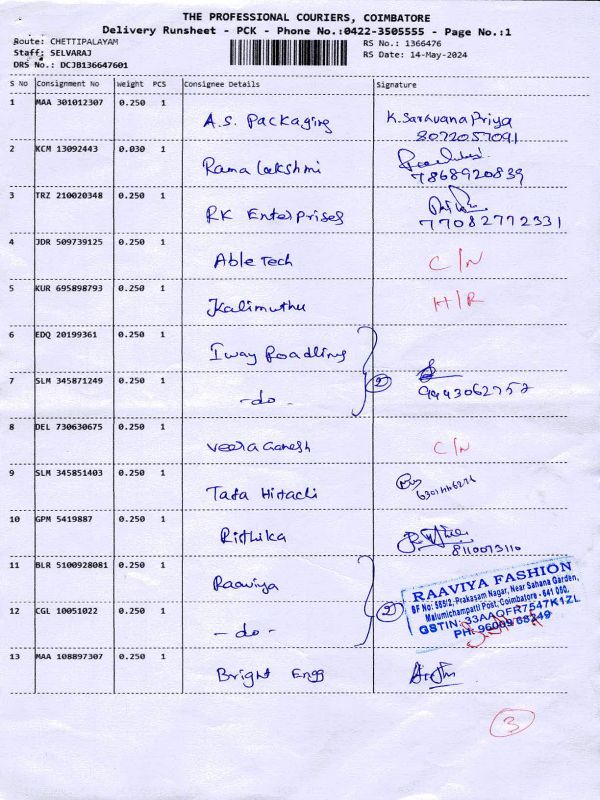 THE PROFESSIONAL COURIERS, COIMBATORE
Delivery Runsheet - PCK - Phone No.:0422-3505555 - Page No.:1
Route: CHETTIPALAYAM
Staff: SELVARAJ
DRS No.: DCJB136647601
RS No.: 1366476
RS Date: 14-May-2024
S No Consignment No Weight PCS Consignee Details Signature
1 MAA 301012307 0.250 1 A.S. Packaging K.Saravana Priya
8072057091
2 KCM 13092443 0.030 1 Rama Lakshmi
7868920839
3 TRZ 210020348 0.250 1 RK Enterprises
77082772331
4 JDR 509739125 0.250 1 Able Tech C/N
5 KUR 695898793 0.250 1 Kalimuthu H/R
6 EDQ 20199361 0.250 1 Iway Roadlings
7 SLM 345871249 0.250 1 -do- 2 9443062752
8 DEL 730630675 0.250 1 Veera Ganesh C/N
9 SLM 345851403 0.250 1 Tata Hitachi
10 GPM 5419887 0.250 1 Rithika
8110073110
11 BLR 5100928081 0.250 1 Raaviya
12 CGL 10051022 0.250 1 -do- 2
RAAVIYA FASHION
SF No: 585/2, Prakasam Nagar, Near Sahana Garden,
Malumichampatti Post, Coimbatore - 641 050.
GSTIN: 33AAQFR7547K1ZL
PH: 96009 68349
13 MAA 108897307 0.250 1 Bright Engg
3